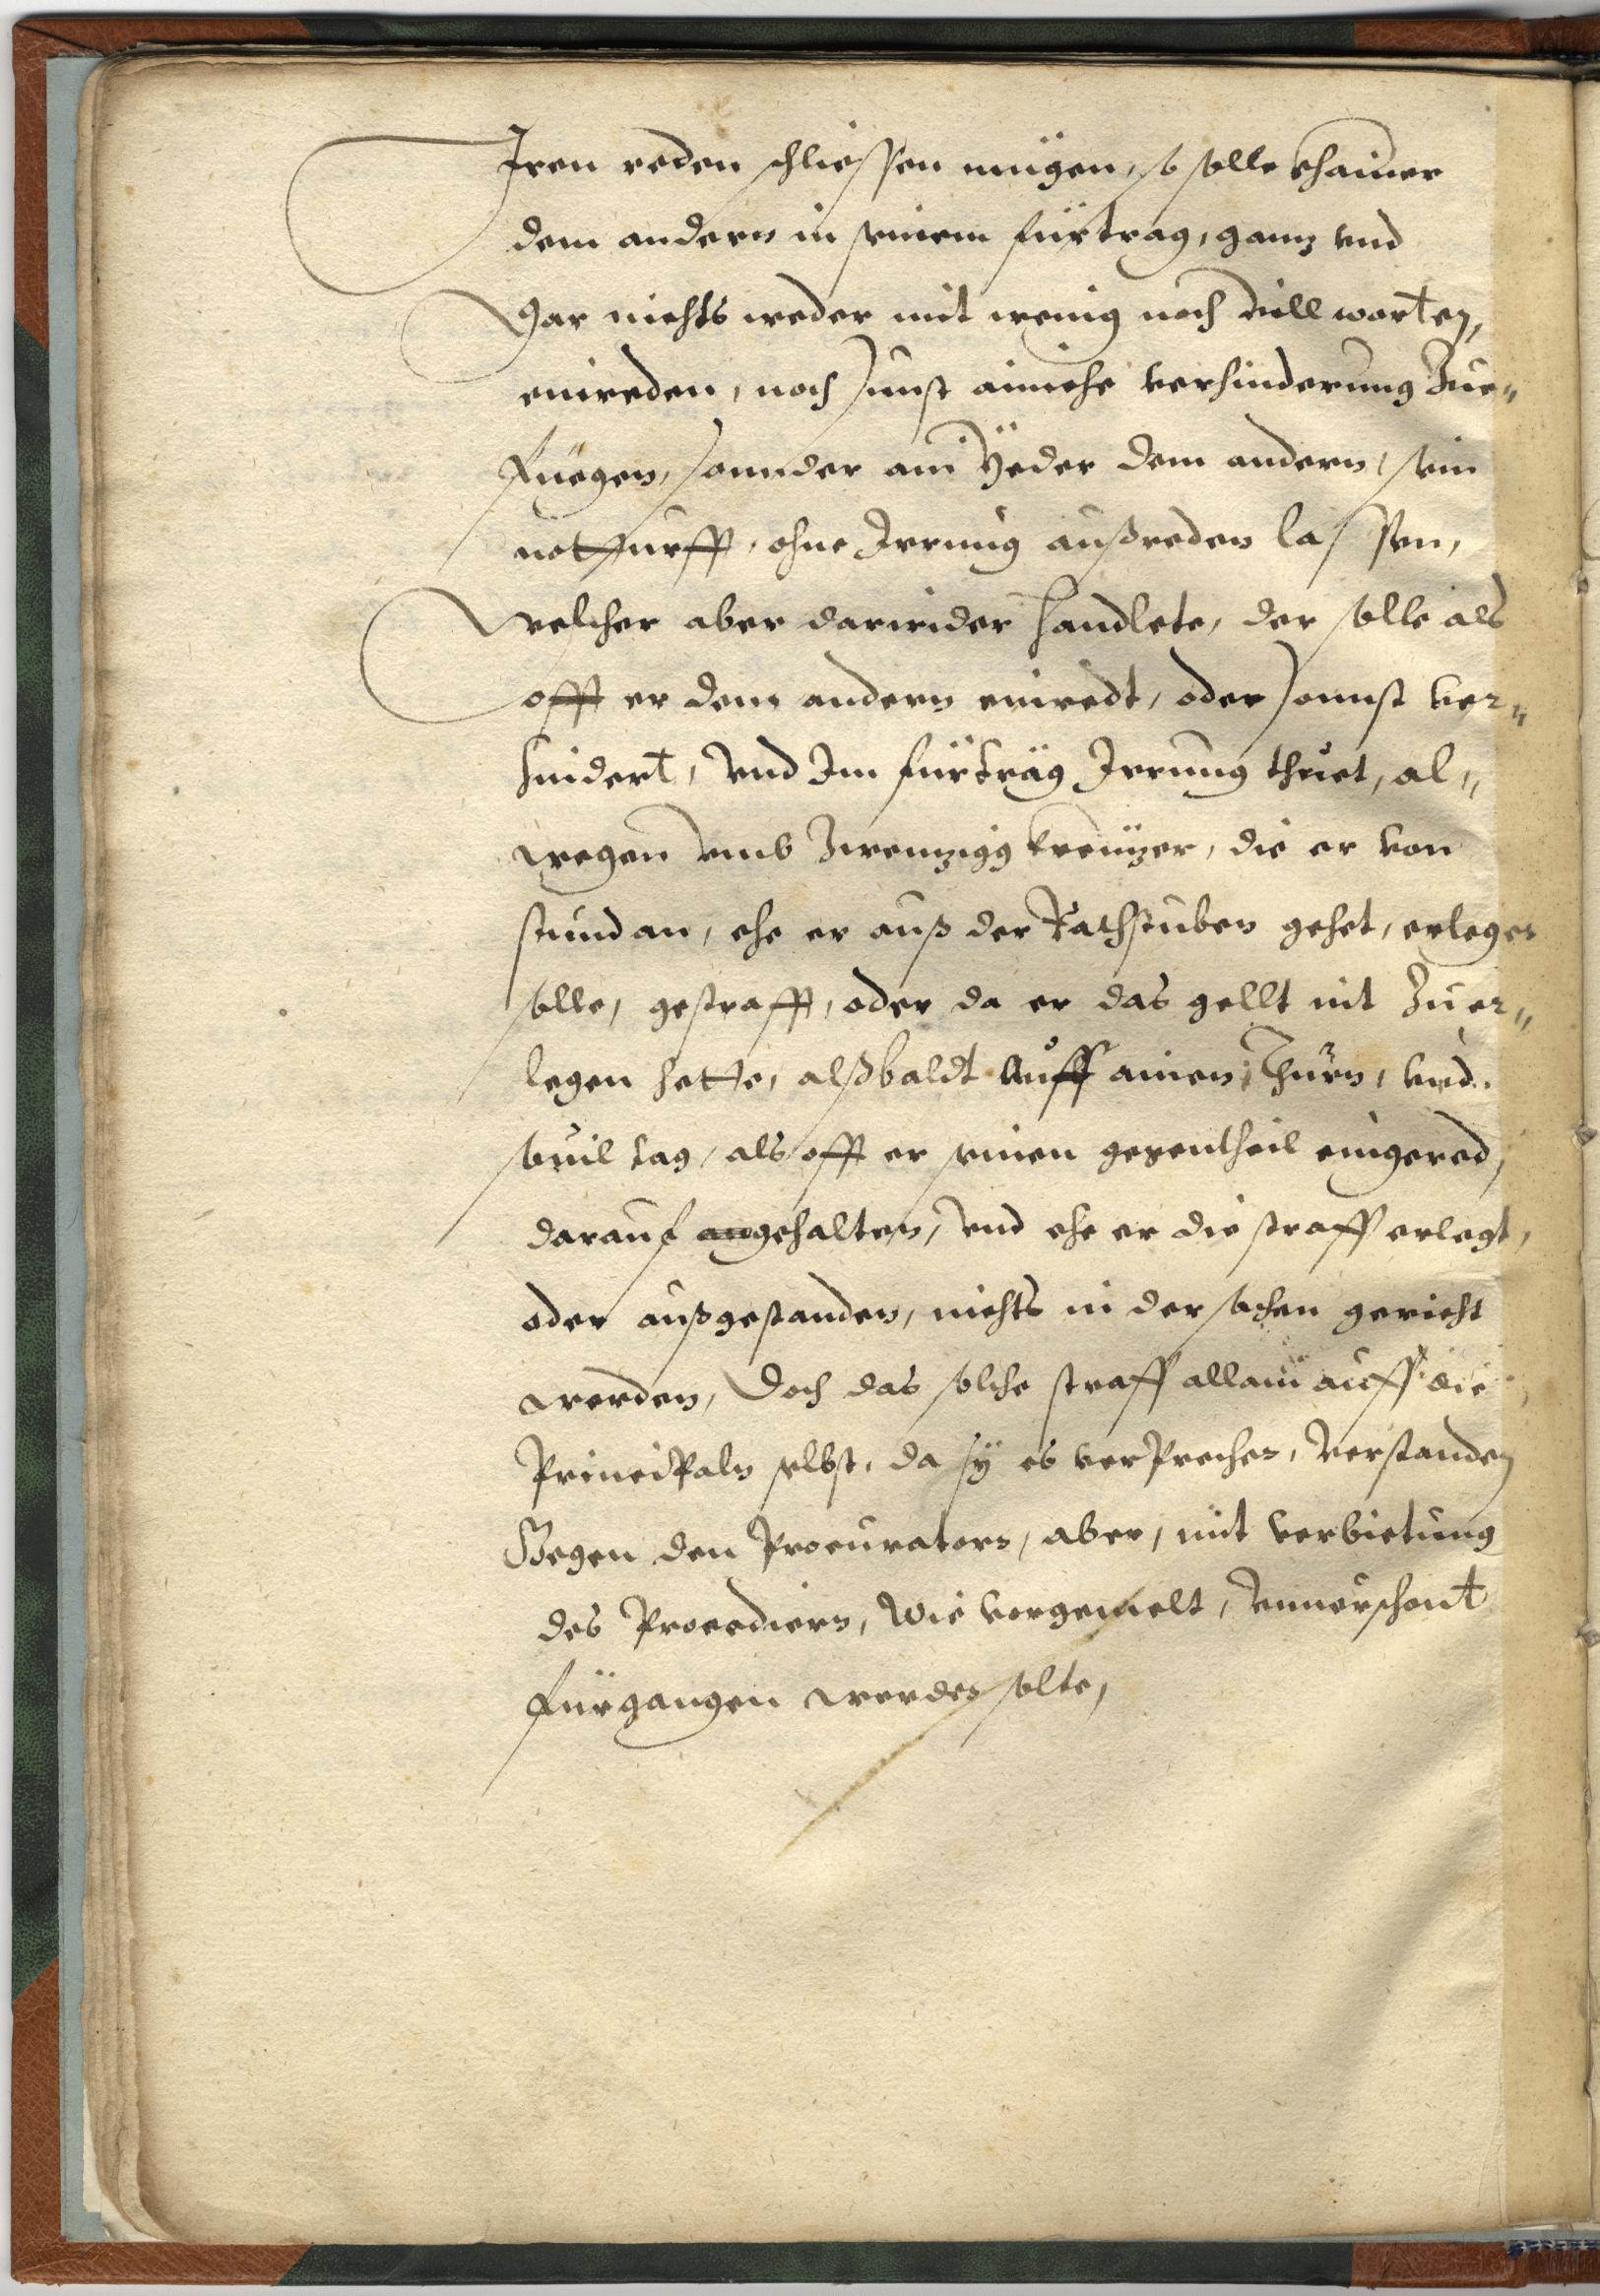 Iren reden schliessen mügen, so solle khainer
dem andern in seinem fürtrag, gannz vnd
Gar nichts weder mit wenig noch vill worten,
einreden, noch sunst ainiche verhinderung Zue„
fuegen, sonnder ain Yeder dem andern, sein
notturfft, ohne Irrung außreden lassen,
welcher aber darwider handlete, der solle als
offt er dem andern einredt, oder sonnst ver„
hindert, vnd Im fürträg Irrung thuet, al„
wegen vmb Zwenzigg kreüzer, die er von
stund an, ehe er auß der Rathstuben gehet, erlegen
solle, gestrafft, oder da er das gellt nit Zu er„
legen hette, alßbaldt auff ainen Thurn, vnd
souil tag, als offt er seinen gegentheil eingered,
darauf angehalten, vnd ehe er die straff erlegt,
oder außgestanden, nichts in der sachen gericht
werden, Doch das solche straff allain auff die
Principaln selbst, da sy es verprechen, verstanden
Gegen den Procuratorn, aber, mit verbietung
des Procedierns, wie vorgemelt, vnuerschont
fürgangen werden solte,